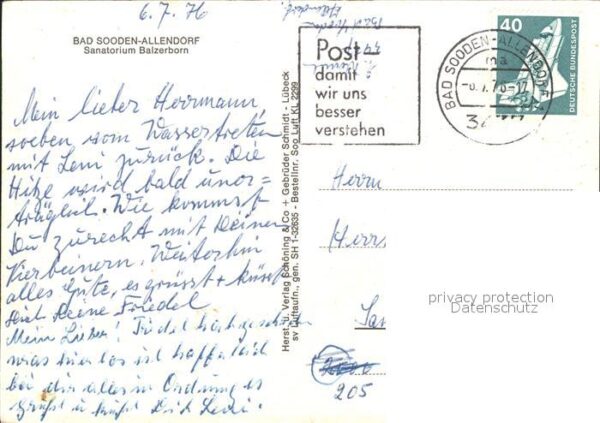 6.7.76
BAD SOODEN-ALLENDORF
Sanatorium Balzerborn
Mein lieber Herrmann,
soeben vom Wassertreten
mit Leni zurück. Die
Hitze wird bald uner-
träglich. Wie kommst
Du zurecht mit Deinen
Vierbeinern. Weiterhin
alles Gute, es grüsst + küsst
Deine Friedel
Mein Lieber! Friedel hat geschrieben
was hier los ist hoffe daß
bei dir alles in Ordnung es
grüßt u küßt Dich Leni.
Herst. u. Verlag Schöning & Co + Gebrüder Schmidt - Lübeck
sv Luftaufn., gen. SH 1-32635 - Bestellnr. Soo Luft KL 5299
Post-
damit
wir uns
besser
verstehen
BAD SOODEN-ALLENDORF
ma
40
DEUTSCHE BUNDESPOST
Herrn
Herr
privacy protection
Datenschutz
205